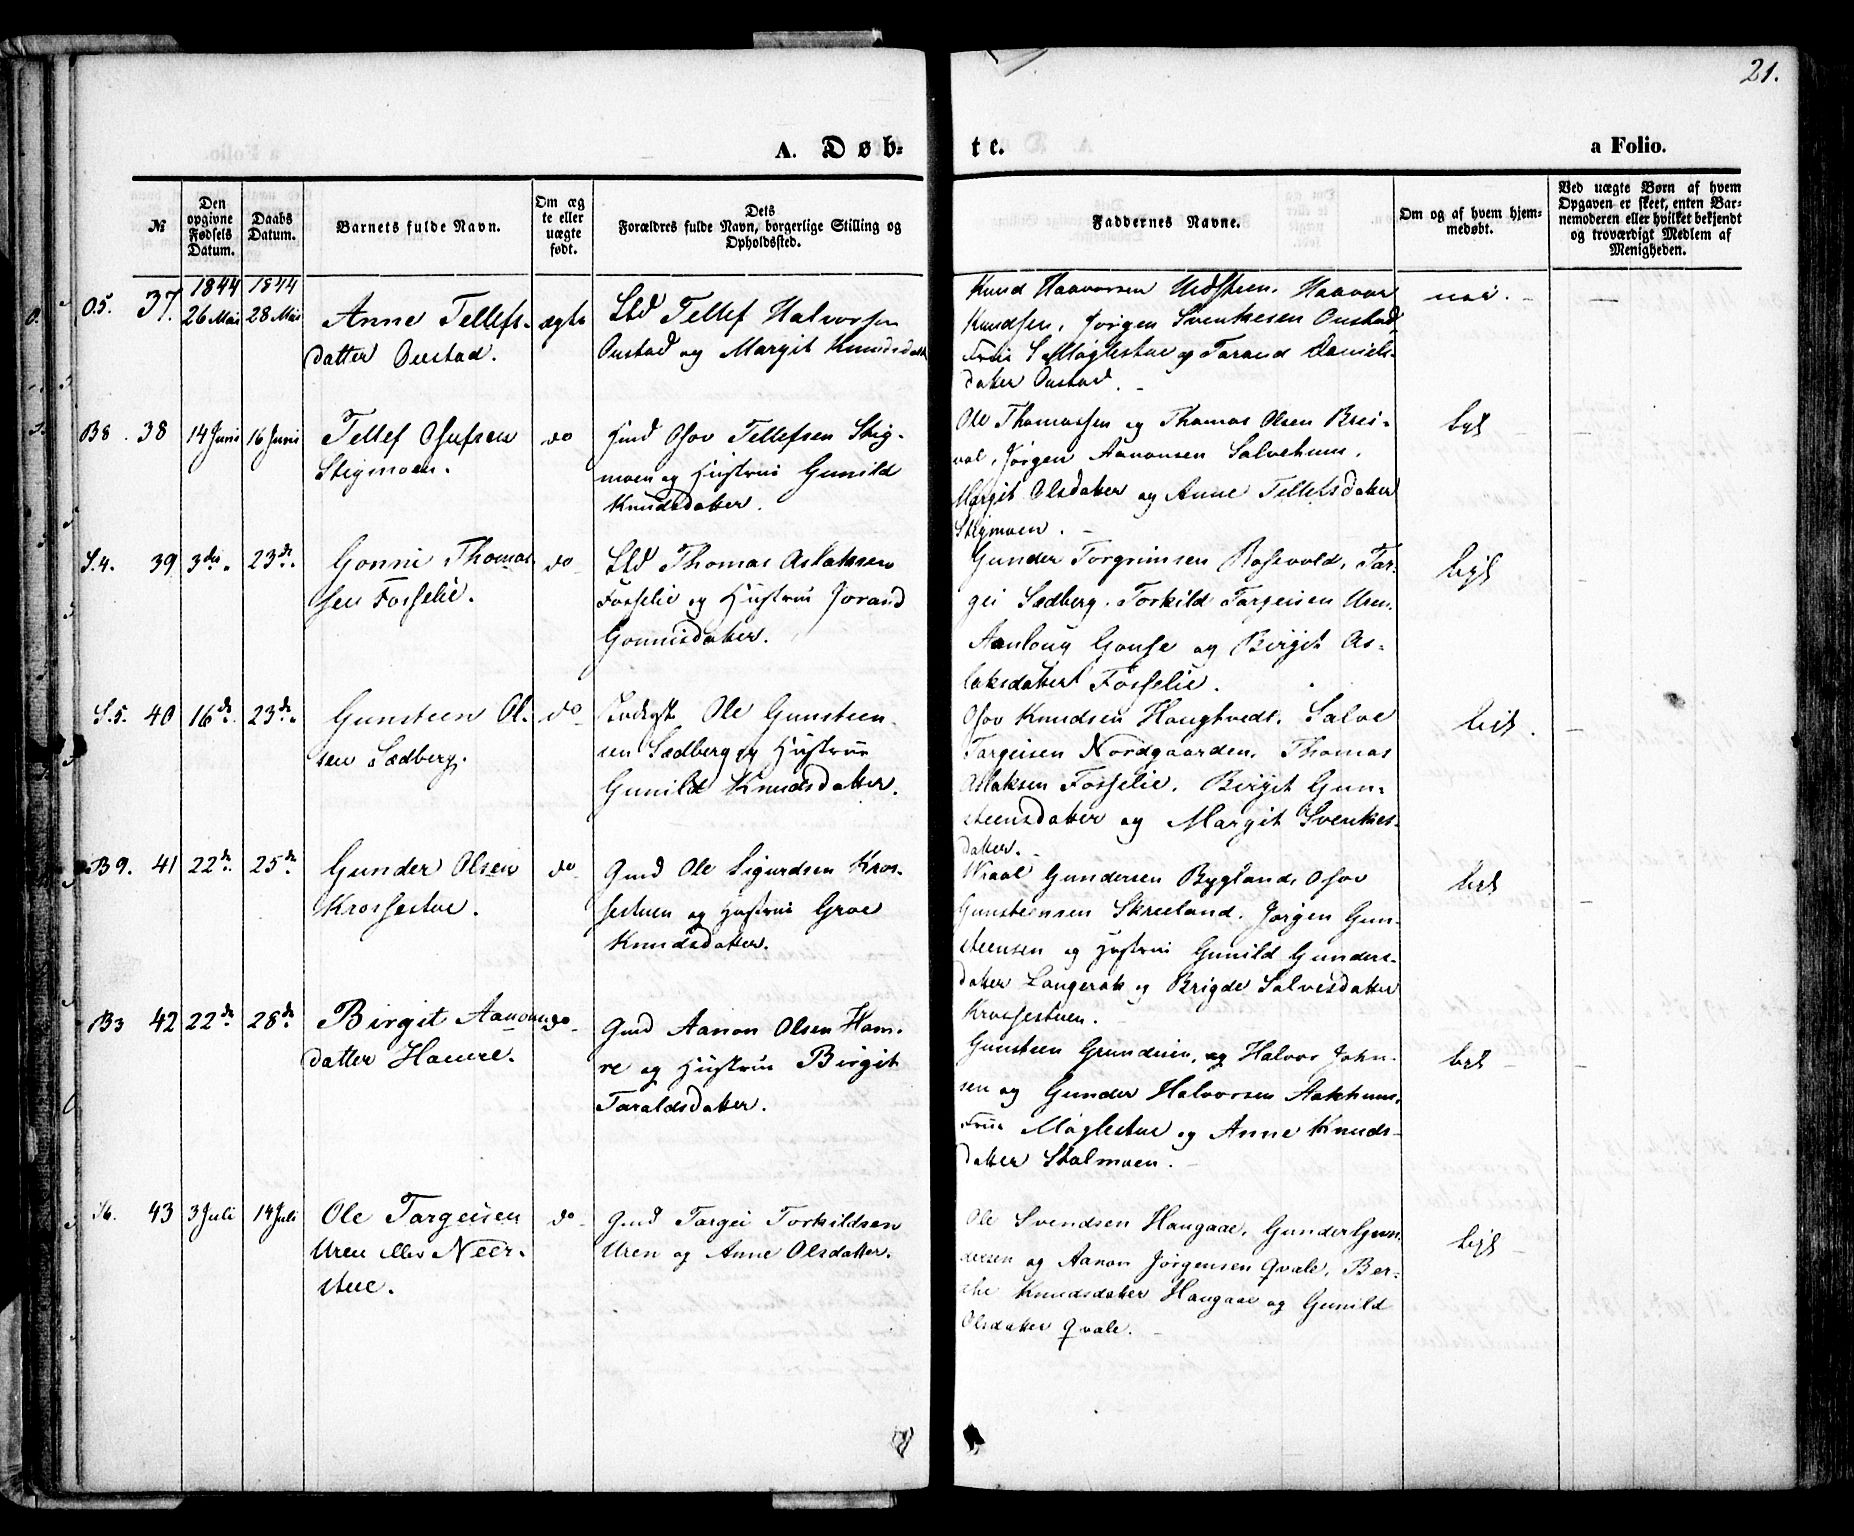 21.
A. Døbte.
a Folio.
№
Den opgivne Fødsels Datum.
Daabs Datum.
Barnets fulde Navn.
Om ægte eller uægte født.
Dets Forældres fulde Navn, borgerlige Stilling og Opholdssted.
Faddernes Navne.
Om og af hvem hjemmedøbt.
Ved uægte Børn af hvem Opgaven er skeet, enten Barnemoderen eller hvilket bekjendt og troværdigt Medlem af Menigheden.
1844 1844
O5. 37. 26 Mai 28 Mai
Anne Tellefs-
datter Oustad.
ægte
Lld Tellef Halvorsen
Oustad og Margit Knudsdatt
Knud Haavorsen Haavor
Knudsen, Jørgen Svenkesen Oustad
Frue S Møglestue og Torand Daniels-
datter Oustad.
nei.
B8. 38 14 Juni 16 Juni
Tellef Osufsen
Stigmoen.
do
Osov Tellefsen Stig-
moen og Hustrue Gunild
Knudsdatter.
Ole Thomassen og Thomas Olsen Brei-
vol, Jørgen Aanonsen Salvehum,
Margit Olsdatter og Anne Tellefsdatter
Stigmoen.
S.4. 39 3die. 23de.
Gonni Thomas-
sen Fosselie.
do
Lld Thomas Aslaksen
Fosselie og Hustrue Jorand
Gonnisdatter.
Gunder Torgrimsen Rosevold, Tar-
gei Sædberg. Torkild Targeisen Uren.
Aanloug Gouse og Birgit As-
laksdatter Fosselie.
S.5. 40 16de. 23de.
Gunsteen Ol-
sen Sædberg.
do
Ole Gunsteen-
sen Sædberg og Hustrue
Gunild Knudsdatter.
Osov Knudsen Hougtvedt, Salve
Targeisen Nordgaarden, Thomas
Aslaksen Fosselie, Birgit Gun-
steensdatter og Margit Svenkes-
datter.
B9. 41 22de. 25de.
Gunder Olsen
Krossestue.
do
Gmd Ole Sigurdsen Kros-
sestuen og Hustrue Groe
Knudsdatter.
Wraal Gundersen Bygland, Osov
Gunsteensen Skreeland. Jørgen Gun-
steensen og Hustrue Gunild Gunders-
datter Langerak og Brigde Salvesdatter
Krossestuen.
B3 42 22de. 28de.
Birgit Aanons
datter Hamre.
do
Gmd Aanon Olsen Ham-
re og Hustrue Birgit
Taraldsdatter.
Gunsteen og Halvor John-
sen og Gunder Halvorsen Aakhuus.
Frue Møglestue og Anne Knuds-
datter Stalmoen.
S6. 43 3 Juli 14 Juli
Ole Targeisen
Uren eller Neer-
stue.
do
Gmd Targei Torkildsen
Uren og Anne Olsdatter.
Ole Svendsen Haugaae, Gunder Gun-
dersen og Aanon Jørgensen Qvale. Ber-
the Knudsdatter Haugaae og Gunild
Olsdatter Qvale.